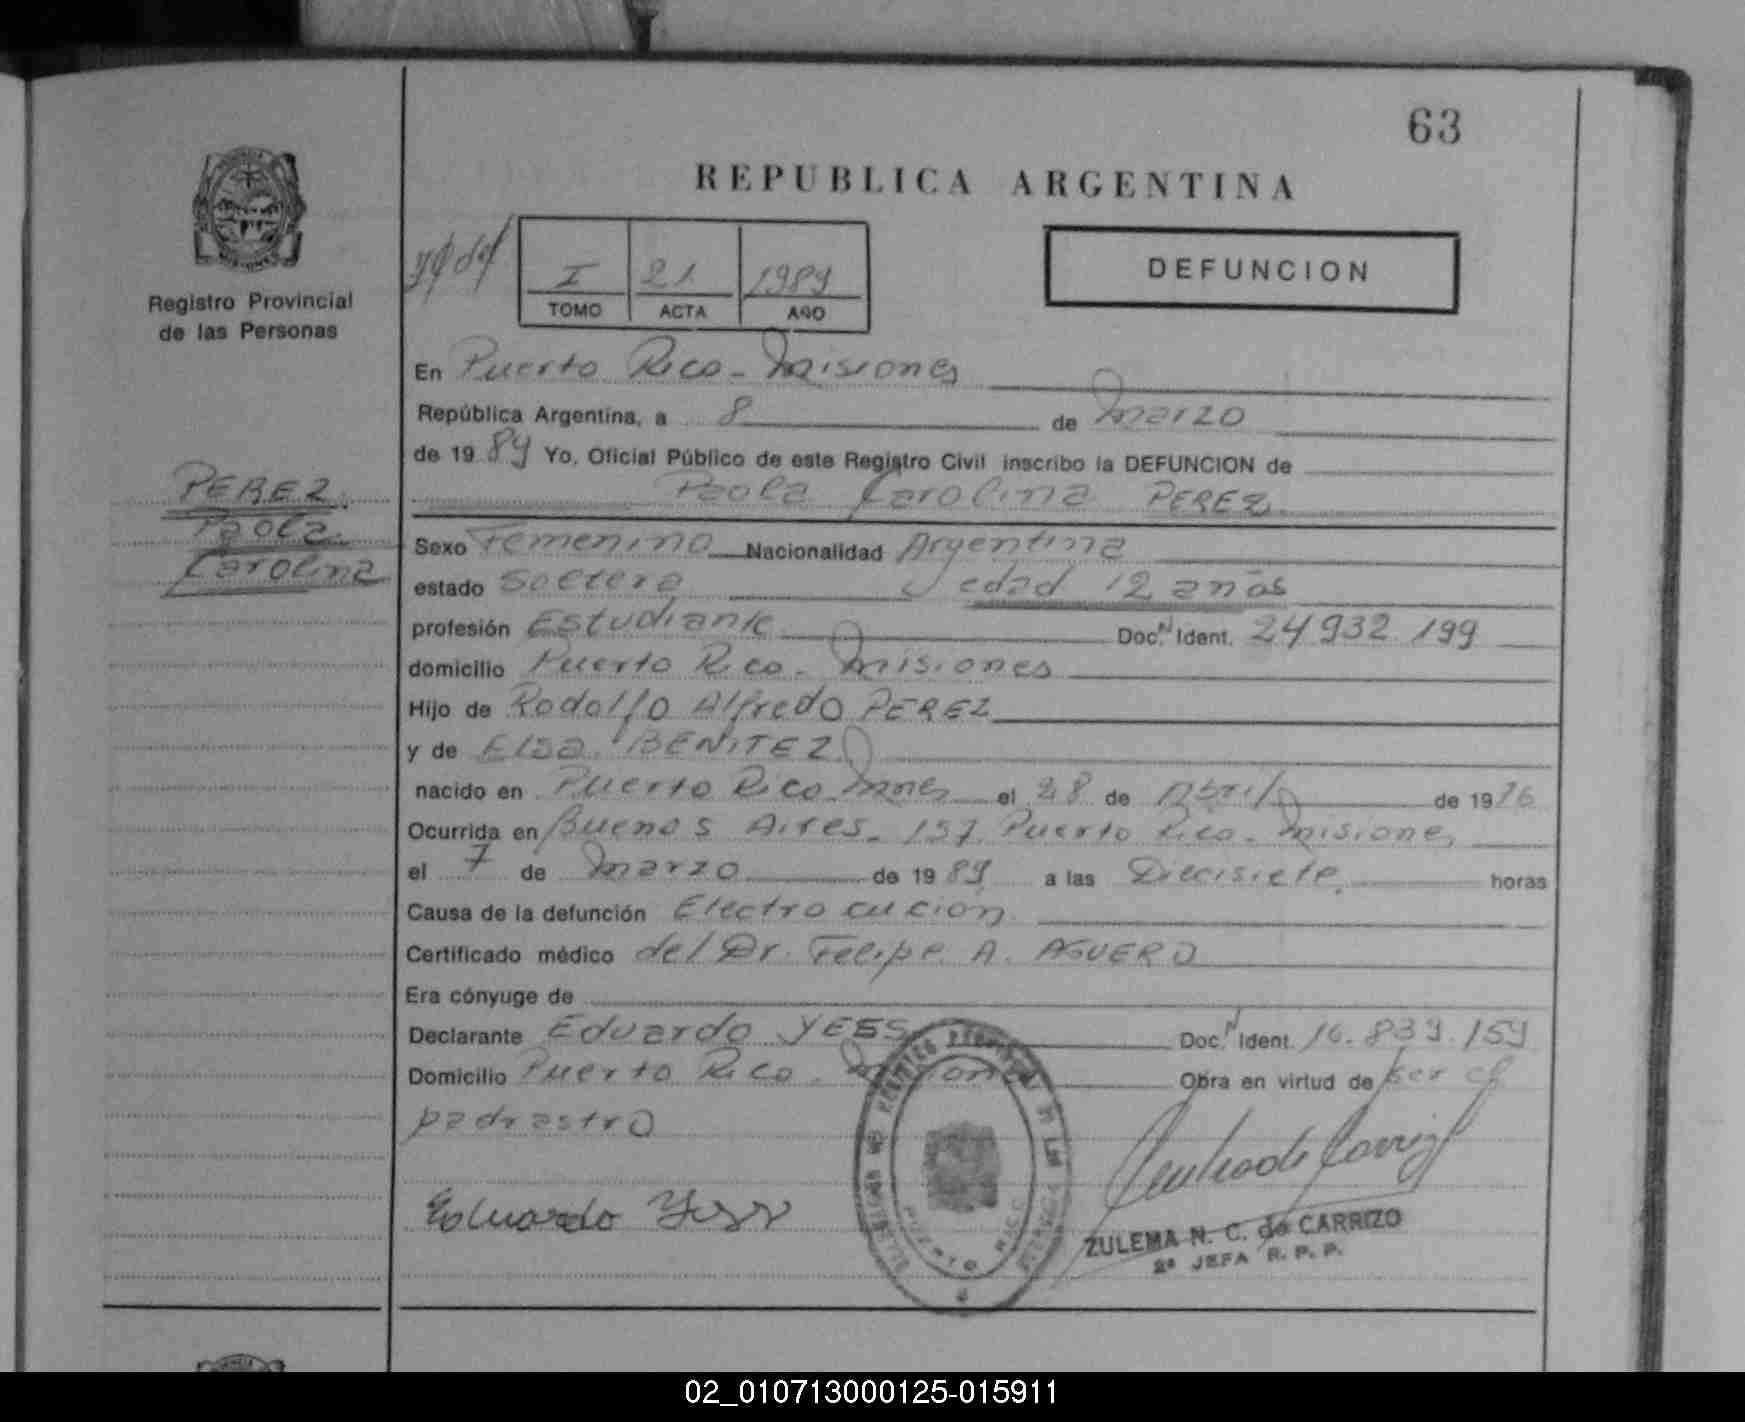 63
REPUBLICA ARGENTINA
Registro Provincial
de las Personas
I 21 1989
TOMO ACTA AÑO
DEFUNCION
PEREZ
Paola
Carolina
En Puerto Rico - Misiones
República Argentina, a 8 de Marzo
de 1989 Yo, Oficial Público de este Registro Civil inscribo la DEFUNCION de
Paola Carolina PEREZ
Sexo Femenino Nacionalidad Argentina
estado Soltera edad 12 años
profesión Estudiante Doc. N Ident. 24932199
domicilio Puerto Rico - Misiones
Hijo de Rodolfo Alfredo PEREZ
y de Elsa BENITEZ
nacido en Puerto Rico Mnes el 28 de Abril de 1976
Ocurrida en Buenos Aires - 157 Puerto Rico - Misiones
el 7 de Marzo de 1989 a las Diecisiete horas
Causa de la defunción Electrocucion
Certificado médico del Dr. Felipe A. AGUERO
Era cónyuge de
Declarante Eduardo YESS Doc. N Ident. 16.839.159
Domicilio Puerto Rico - Misiones Obra en virtud de ser el
padrastro
Eduardo Yess
PUERTO RICO
ZULEMA N. C. de CARRIZO
2ª JEFA R. P. P.
02_010713000125-015911